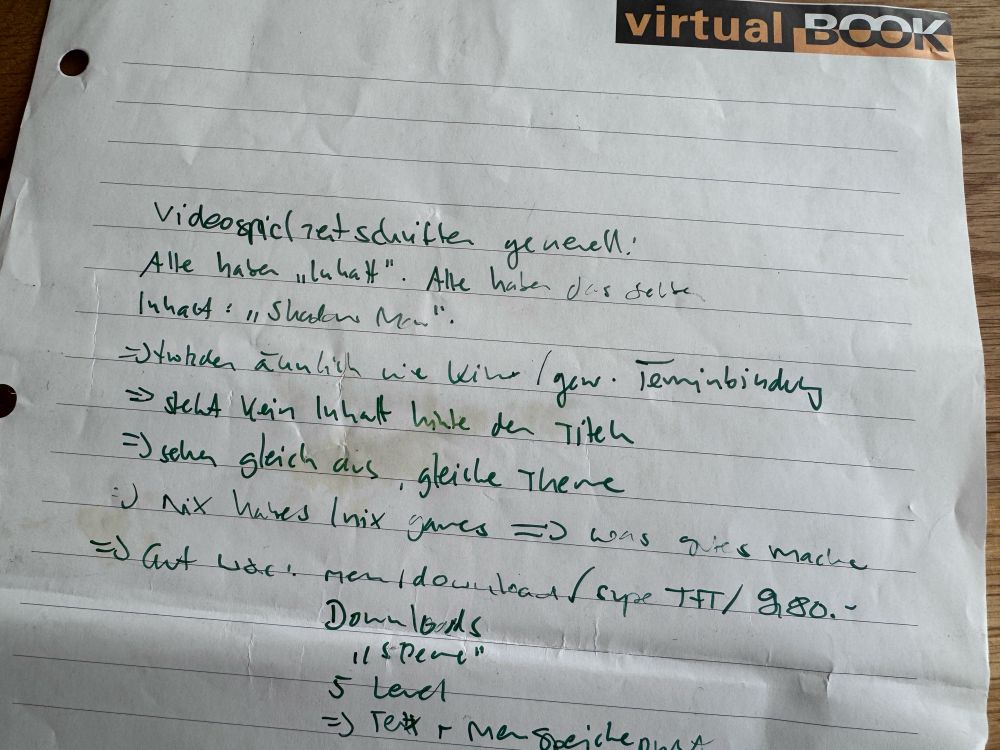 virtual BOOK
Videospielzeitschriften generell:
Alle haben „Inhalt". Alle haben das selben
Inhalt: „Shadow Man".
=> ähnlich wie Kino / gew. Terminbindung
=> steht kein Inhalt hinte den Titeln
=> sehen gleich aus, gleiche Theme
=> nix haves / nix games => was gutes mache
=> Gut wäre: mem / download / supe TFT / 9,80.-
Downloads
5 Level
=> Text + Memspeiche